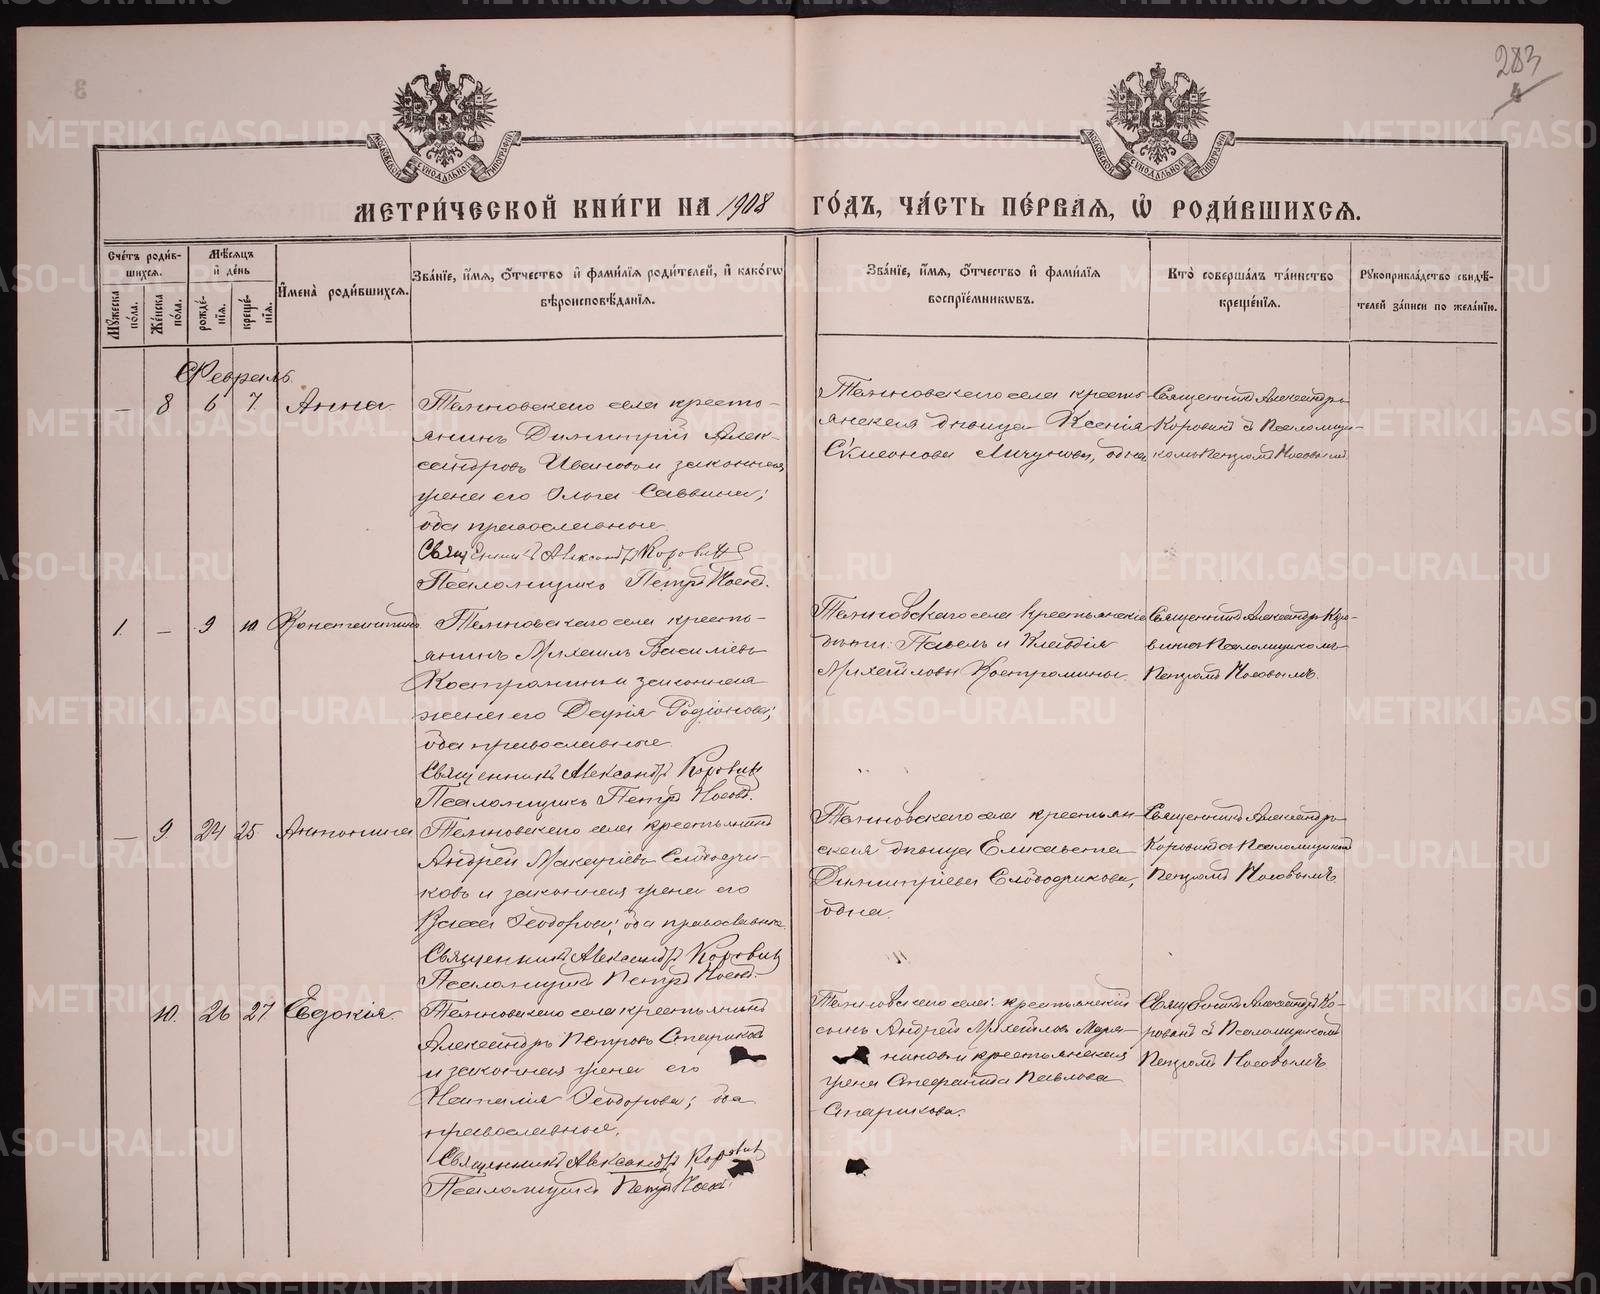 283
4
МЕТРИ́ЧЕСКОЙ КНИ́ГИ НА 1908 ГО́ДЪ, ЧА́СТЬ ПЕ́РВАѦ, Ѡ҆ РОДИ́ВШИХСѦ.
Сче́тъ роди́в-
шихсѧ.
Мꙋ́жеска по́ла.
Же́нска по́ла.
Мѣ́сѧцъ и҆ де́нь
рожде́-нїѧ.
креще́-нїѧ.
И҆мена̀ роди́вшихсѧ.
Зва́нїе, и҆́мѧ, ѻ҆́тчество и҆ фами́лїѧ роди́телей, и҆ како́гѡ
вѣроисповѣ́данїѧ.
Зва́нїе, и҆́мѧ, ѻ҆́тчество и҆ фами́лїѧ
воспрїе́мникѡвъ.
Кто̀ соверша́лъ та́инство
креще́нїѧ.
Рꙋкоприкла́дство свидѣ́-
телей за́писи по жела́нїю.
Февраль.
— 8 6 7. Анна
села кресть-
янинъ Димитрій Алек-
сандровъ Ивановъ и законная
жена его Ольга Саввина;
оба православные.
Священникъ Александръ Коровинъ
Псаломщикъ Петръ Носовъ.
села кресть-
янская дѣвица Ксенія
Сѵмеонова одна
Священникъ Александръ
Коровинъ съ Псаломщи-
комъ Петромъ Носовымъ.
1. — 9 10 Константинъ
села кресть-
янинъ Михаилъ Василіевъ
Костроминъ и законная
жена его Дарія Родіонова;
оба православные.
Священникъ Александръ Коровинъ
Псаломщикъ Петръ Носовъ.
села крестьянскіе
дѣти: Павелъ и Клавдія
Михайловы Костромины.
Священникъ Александръ Коро-
винъ съ Псаломщикомъ
Петромъ Носовымъ.
— 9. 24 25 Антонина
села крестьянинъ
Андрей Макаріевъ Слободчи-
ковъ и законная жена его
Ѳеодорова; оба православные.
Священникъ Александръ Коровинъ
Псаломщикъ Петръ Носовъ.
села крестьян-
ская дѣвица Елисавета
Димитріева Слободчикова,
одна.
Священникъ Александръ
Коровинъ съ Псаломщикомъ
Петромъ Носовымъ.
10. 26 27 Евдокія.
села крестьянинъ
Александръ Петровъ Стариковъ
и законная жена его
Наталія Ѳеодорова; оба
православные.
Священникъ Александръ Коровинъ
Псаломщикъ Петръ Носовъ.
села: крестьянскій
сынъ Андрей Михайловъ
и крестьянская
жена Павлова
Старикова.
Священникъ Александръ Ко-
ровинъ съ Псаломщикомъ
Петромъ Носовымъ.
METRIKI.GASO-URAL.RU